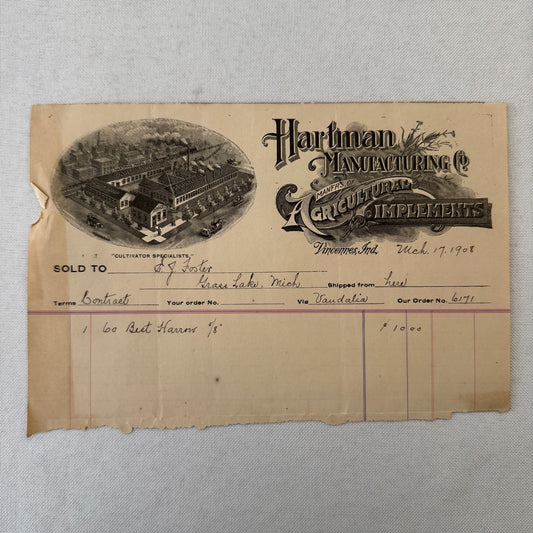 Hartman
Manufacturing Co
Manf'rs of
Agricultural
and Implements
Vincennes, Ind. Mch. 17, 1908
"CULTIVATOR SPECIALISTS."
SOLD TO J Foster
Grass Lake, Mich Shipped from here
Terms Contract Your order No. Via Vandalia Our Order No. 6171
1 60 Best Harrow $ 10 00